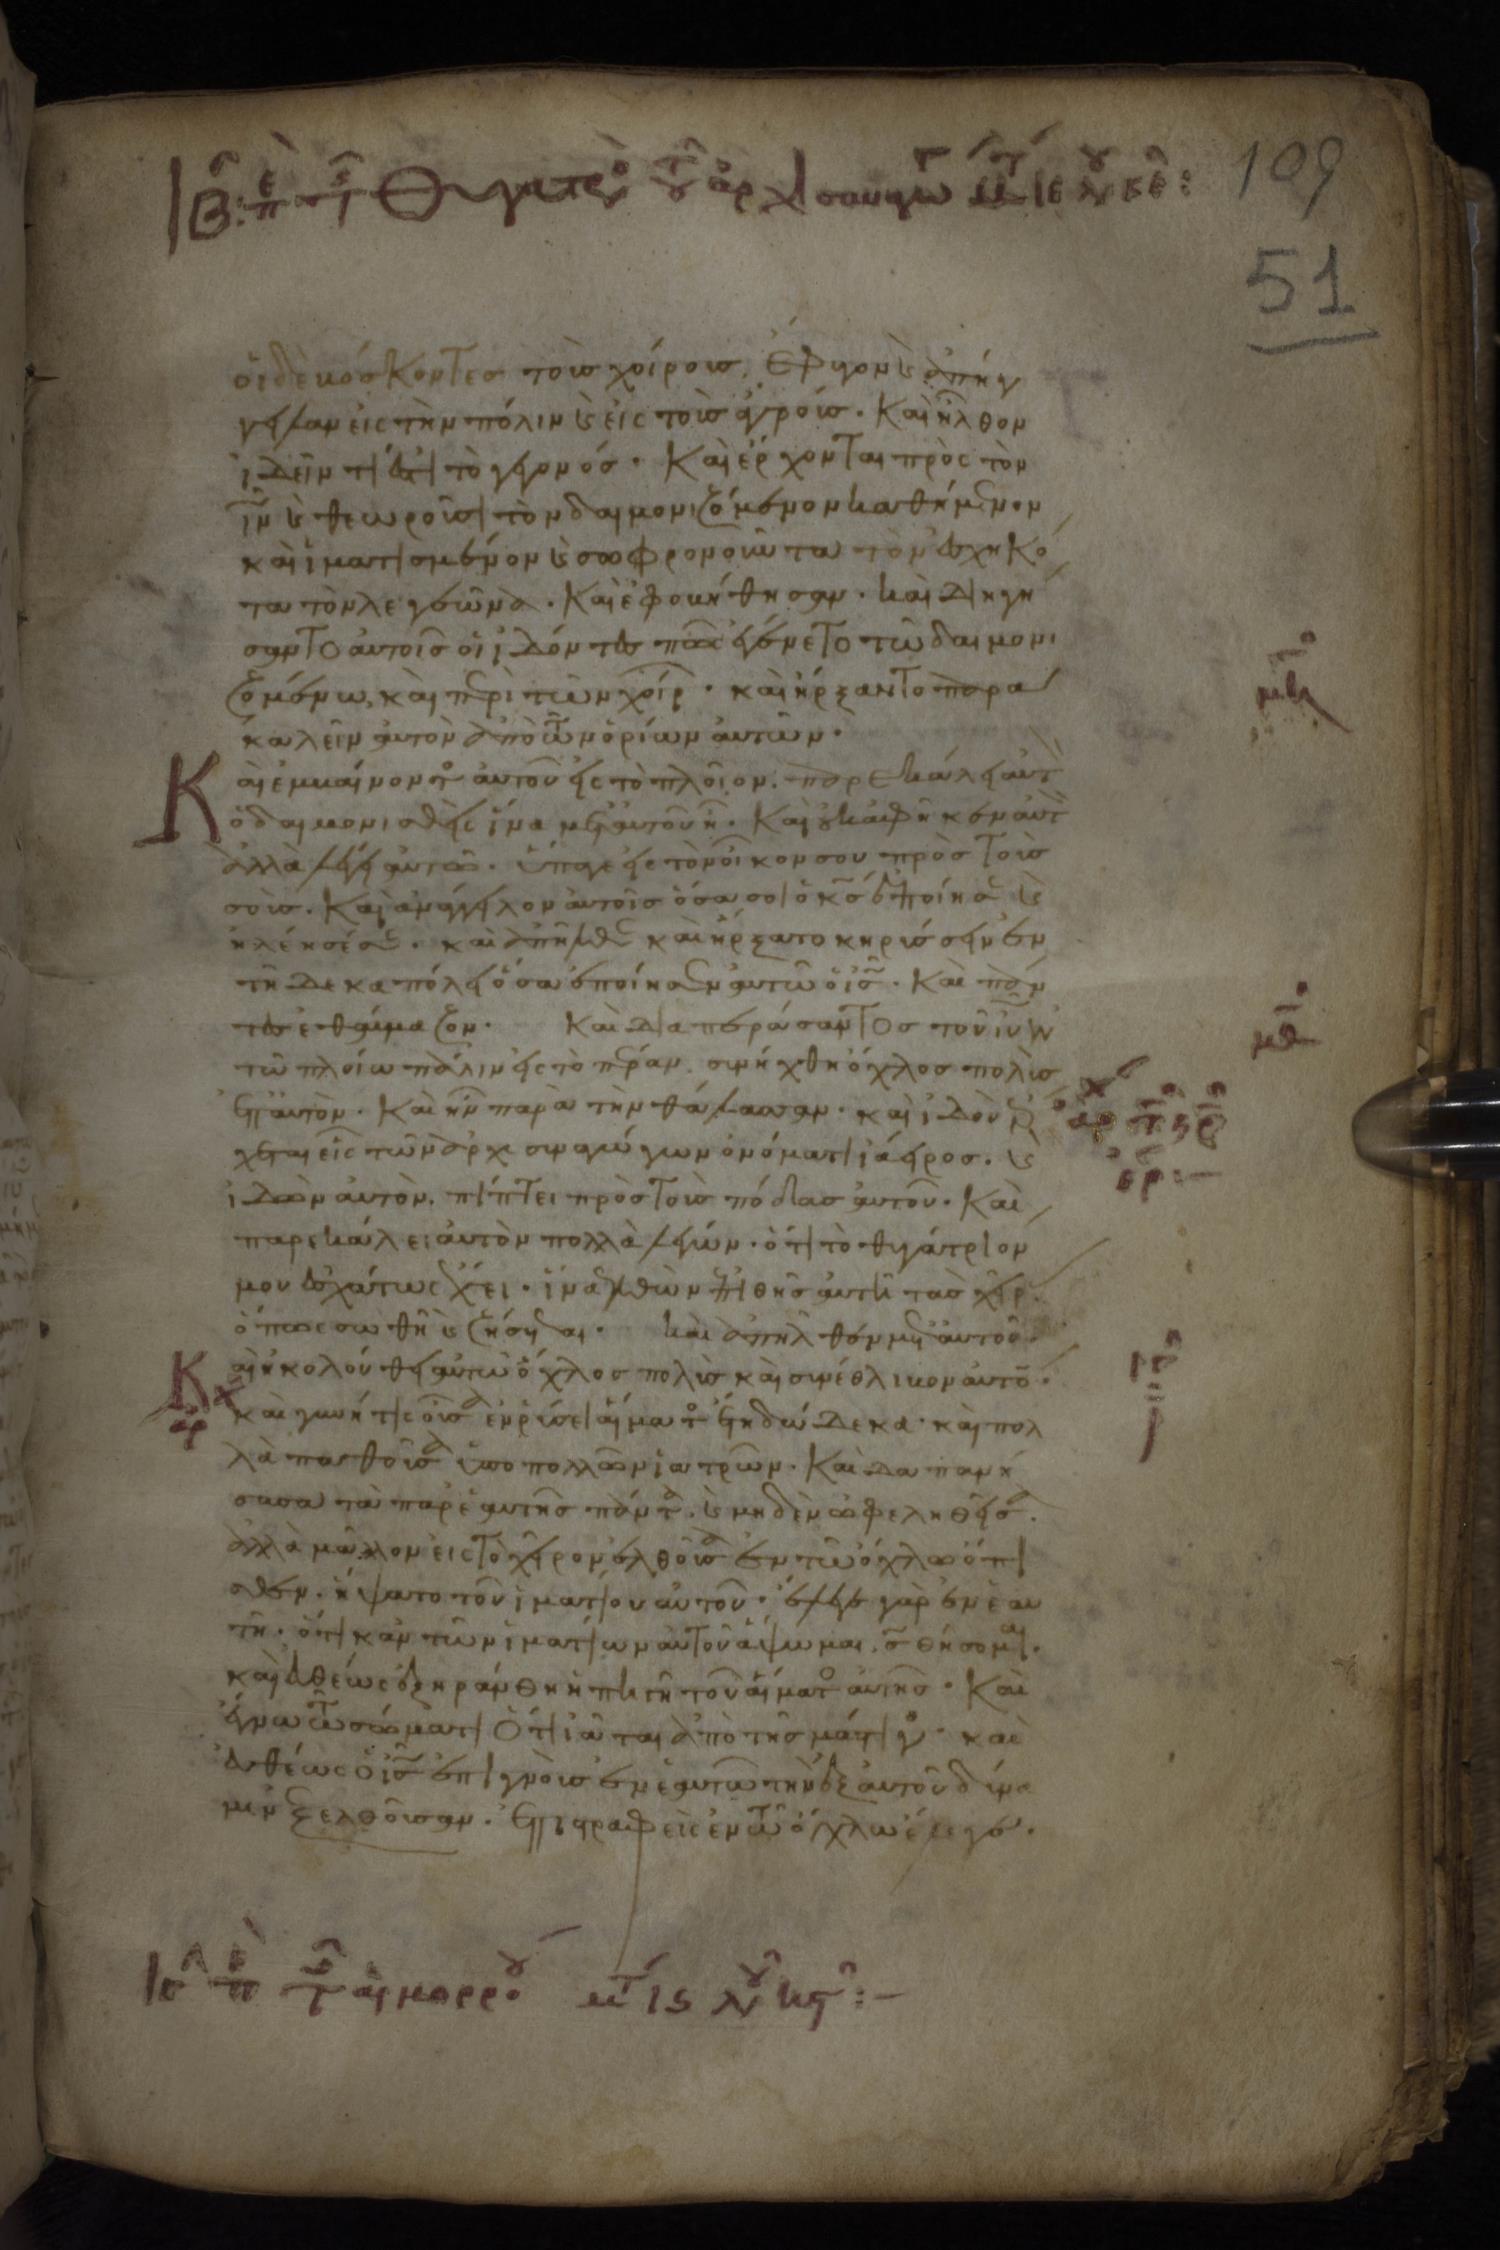 ΙΒ: περὶ τῆς Θυγατρὸς τοῦ ἀρχισυναγώγου μτ ιε λου κε:
109
51
οἱ δὲ βόσκοντες τοὺς χοίρους. Ἔφυγον καὶ ἀπήγ
γειλαν εἰς τὴν πόλιν καὶ εἰς τοὺς ἀγρούς. Καὶ ἦλθον
ἰδεῖν τί ἐστι τὸ γεγονός. Καὶ ἔρχονται πρὸς τὸν
ιν καὶ θεωροῦσι τὸν δαιμονιζόμενον καθήμενον
καὶ ἱματισμένον καὶ σωφρονοῦντα τὸν ἐσχηκό
τα τὸν λεγεῶνα. Καὶ ἐφοβήθησαν. καὶ διηγή
σαντο αὐτοῖς οἱ ἰδόντες πῶς ἐγένετο τῶ δαιμονι
ζομένω, καὶ περὶ τῶν χοίρ. καὶ ἤρξαντο παρα
καλεῖν αὐτὸν ἀπὸ τῶν ὁρίων αὐτῶν.
Καὶ ἐμβαίνοντος αὐτοῦ εἰς τὸ πλοῖον. παρεκάλει αὐτ
ὁ δαιμονισθεὶς ἵνα μετ αὐτοῦ ἦ. Καὶ οὐκ ἀφῆκεν αὐτ
ἀλλὰ λέγει αὐτῶ. ὕπαγε εἰς τὸν οἶκον σου πρὸς τοὺς
σούς. Καὶ ἀνάγγειλον αὐτοῖς ὅσα σοι ὁ κς πεποίηκε καὶ
ἠλέησέ σε. καὶ ἀπῆλθε καὶ ἤρξατο κηρύσσειν ἐν
τῆ Δεκαπόλει ὅσα ἐποίησεν αὐτῶ ὁ ις. Καὶ πάν
τες ἐθαύμαζον. Καὶ διαπεράσαντος τοῦ ιυ ἐν
τῶ πλοίω πάλιν εἰς τὸ πέραν. συνήχθη ὄχλος πολὺς
ἐπ αὐτὸν. Καὶ ἦν παρὰ τὴν θάλασσαν. καὶ ἰδοὺ ἔρ
χεται εἷς τῶν ἀρχισυναγώγων ὀνόματι ἰάειρος. καὶ
ἰδὼν αὐτὸν. πίπτει πρὸς τοὺς πόδας αὐτοῦ. Καὶ
παρεκάλει αὐτὸν πολλὰ λέγων. ὅτι τὸ θυγάτριον
μου ἐσχάτως ἔχει. ἵνα ἐλθὼν ἐπιθῆς αὐτῆ τὰς χεῖρ.
ὅπως σωθῆ καὶ ζήσεται. καὶ ἀπῆλθεν μετ αὐτοῦ.
Καὶ ἠκολούθει αὐτῶ ὄχλος πολὺς καὶ συνέθλιβον αὐτὸ.
καὶ γυνή τις οὖσα ἐν ῥύσει αἵματος ἔτη δώδεκα. καὶ πολ
λὰ παθοῦσα ὑπο πολλῶν ἰατρῶν. Καὶ δαπανή
σασα τὰ παρ ἑαυτῆς πάντα. καὶ μηδὲν ὠφεληθεῖσα.
ἀλλὰ μᾶλλον εἰς τὸ χεῖρον ἐλθοῦσα ἐν τῶ ὄχλω ὄπι
σθεν. ἥψατο τοῦ ἱματίου αὐτοῦ. ἔλεγε γὰρ ἐν ἑαυ
τῆ. ὅτι κἂν τῶν ἱματίων αὐτοῦ ἅψωμαι, σωθήσομαι.
καὶ εὐθέως ἐξηράνθη ἡ πηγὴ τοῦ αἵματος αὐτῆς. Καὶ
ἔγνω τῶ σώματι Ὅτι ἴαται ἀπὸ τῆς μάστιγος. καὶ
εὐθέως ὁ ις ἐπιγνοὺς ἐν ἑαυτῶ τὴν ἐξ αὐτοῦ δύνα
μιν ἐξελθοῦσαν. Ἐπιστραφεὶς ἐν τῶ ὄχλω ἔλεγε.
ιγ περὶ τῆς αἱμορρου μτ ις λου κς:-